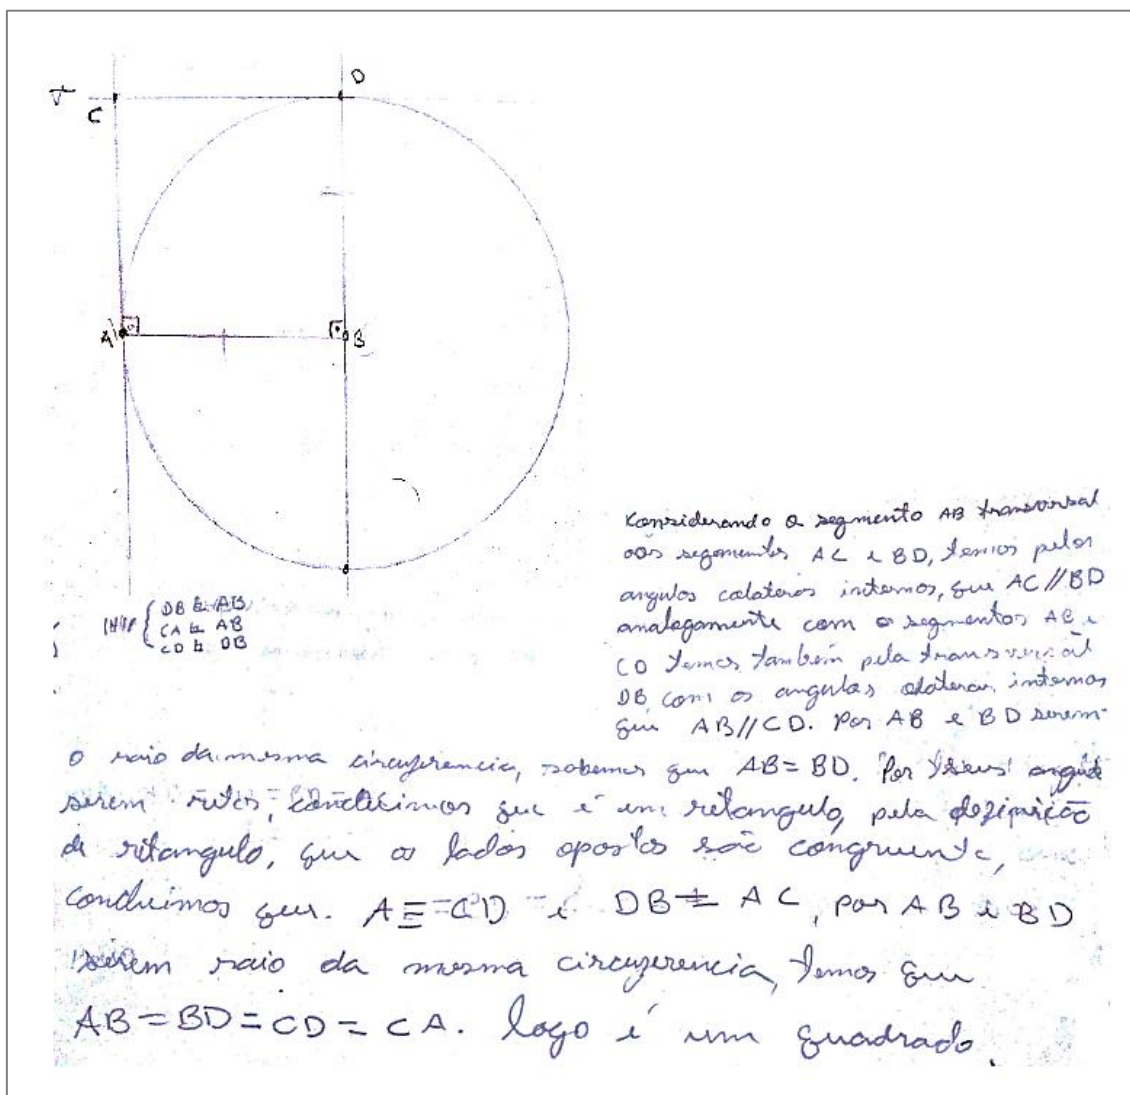 D
r
C
A
B
HIP { DB ⊥ AB
CA ⊥ AB
CD ⊥ DB
Konsiderando o segmento AB transversal
aos segmentos AC e BD, temos pelos
angulos colaterais internos, que AC // BD
analogamente com o segmentos AB e
CD temos também pela transversal
DB com os angulos colaterais internos
que AB // CD. Por AB e BD serem
o raio da mesma circuferencia, sabemos que AB = BD. Por seus angulos
serem retos, concluimos que é um retangulo, pela definição
de retangulo, que os lados opostos são congruente,
concluimos que. A ≡ CD e DB ≡ AC, por AB e BD
serem raio da mesma circuferencia, temos que
AB = BD = CD = CA. logo é um quadrado.